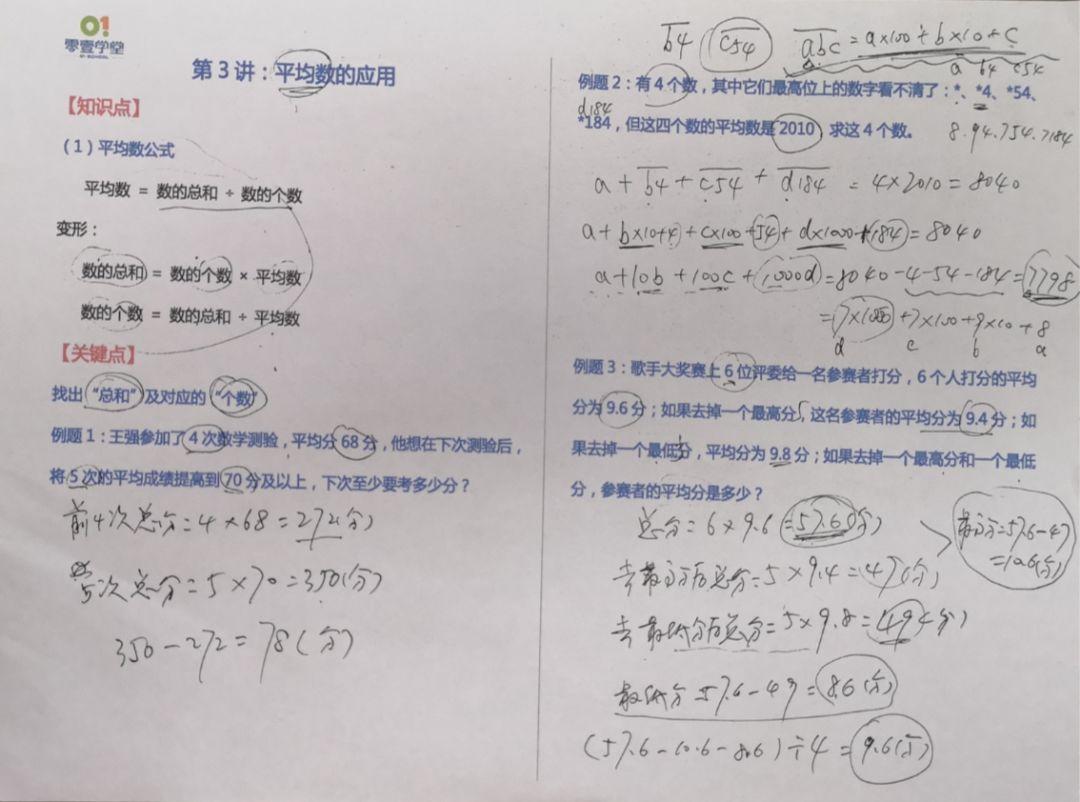 01
零壹学堂
01 SCHOOL
第3讲：平均数的应用
【知识点】
（1）平均数公式
平均数 = 数的总和 ÷ 数的个数
变形：
数的总和 = 数的个数 × 平均数
数的个数 = 数的总和 ÷ 平均数
【关键点】
找出“总和”及对应的“个数”
例题1：王强参加了4次数学测验，平均分68分，他想在下次测验后，
将5次的平均成绩提高到70分及以上，下次至少要考多少分？
前4次总分=4×68=272(分)
5次总分=5×70=350(分)
350-272=78(分)
b4 c54 abc=a×100+b×10+c
a b4 c54
例题2：有4个数，其中它们最高位上的数字看不清了：*、*4、*54、
d184
*184，但这四个数的平均数是2010，求这4个数。
8.94.754.7184
a+b4+c54+d184=4×2010=8040
a+b×10+4+c×100+54+d×1000+184=8040
a+10b+100c+1000d=8040-4-54-184=7798
=7×1000+7×100+9×10+8
d c b a
例题3：歌手大奖赛上6位评委给一名参赛者打分，6个人打分的平均
分为9.6分；如果去掉一个最高分，这名参赛者的平均分为9.4分；如
果去掉一个最低分，平均分为9.8分；如果去掉一个最高分和一个最低
分，参赛者的平均分是多少？
总分=6×9.6=57.6(分)
去最高分后总分=5×9.4=47(分)
最高分=57.6-47
=10.6(分)
去最低分后总分=5×9.8=49(分)
最低分=57.6-49=8.6(分)
(57.6-10.6-8.6)÷4=9.6(分)